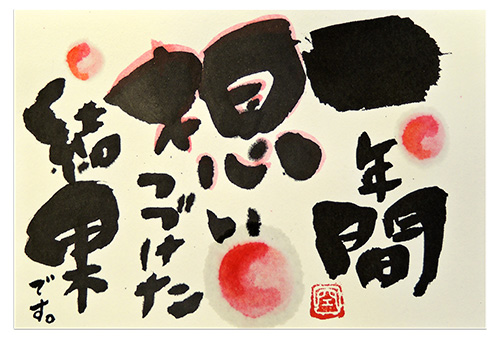 一年間
想い
つづけた
結果
です。
空